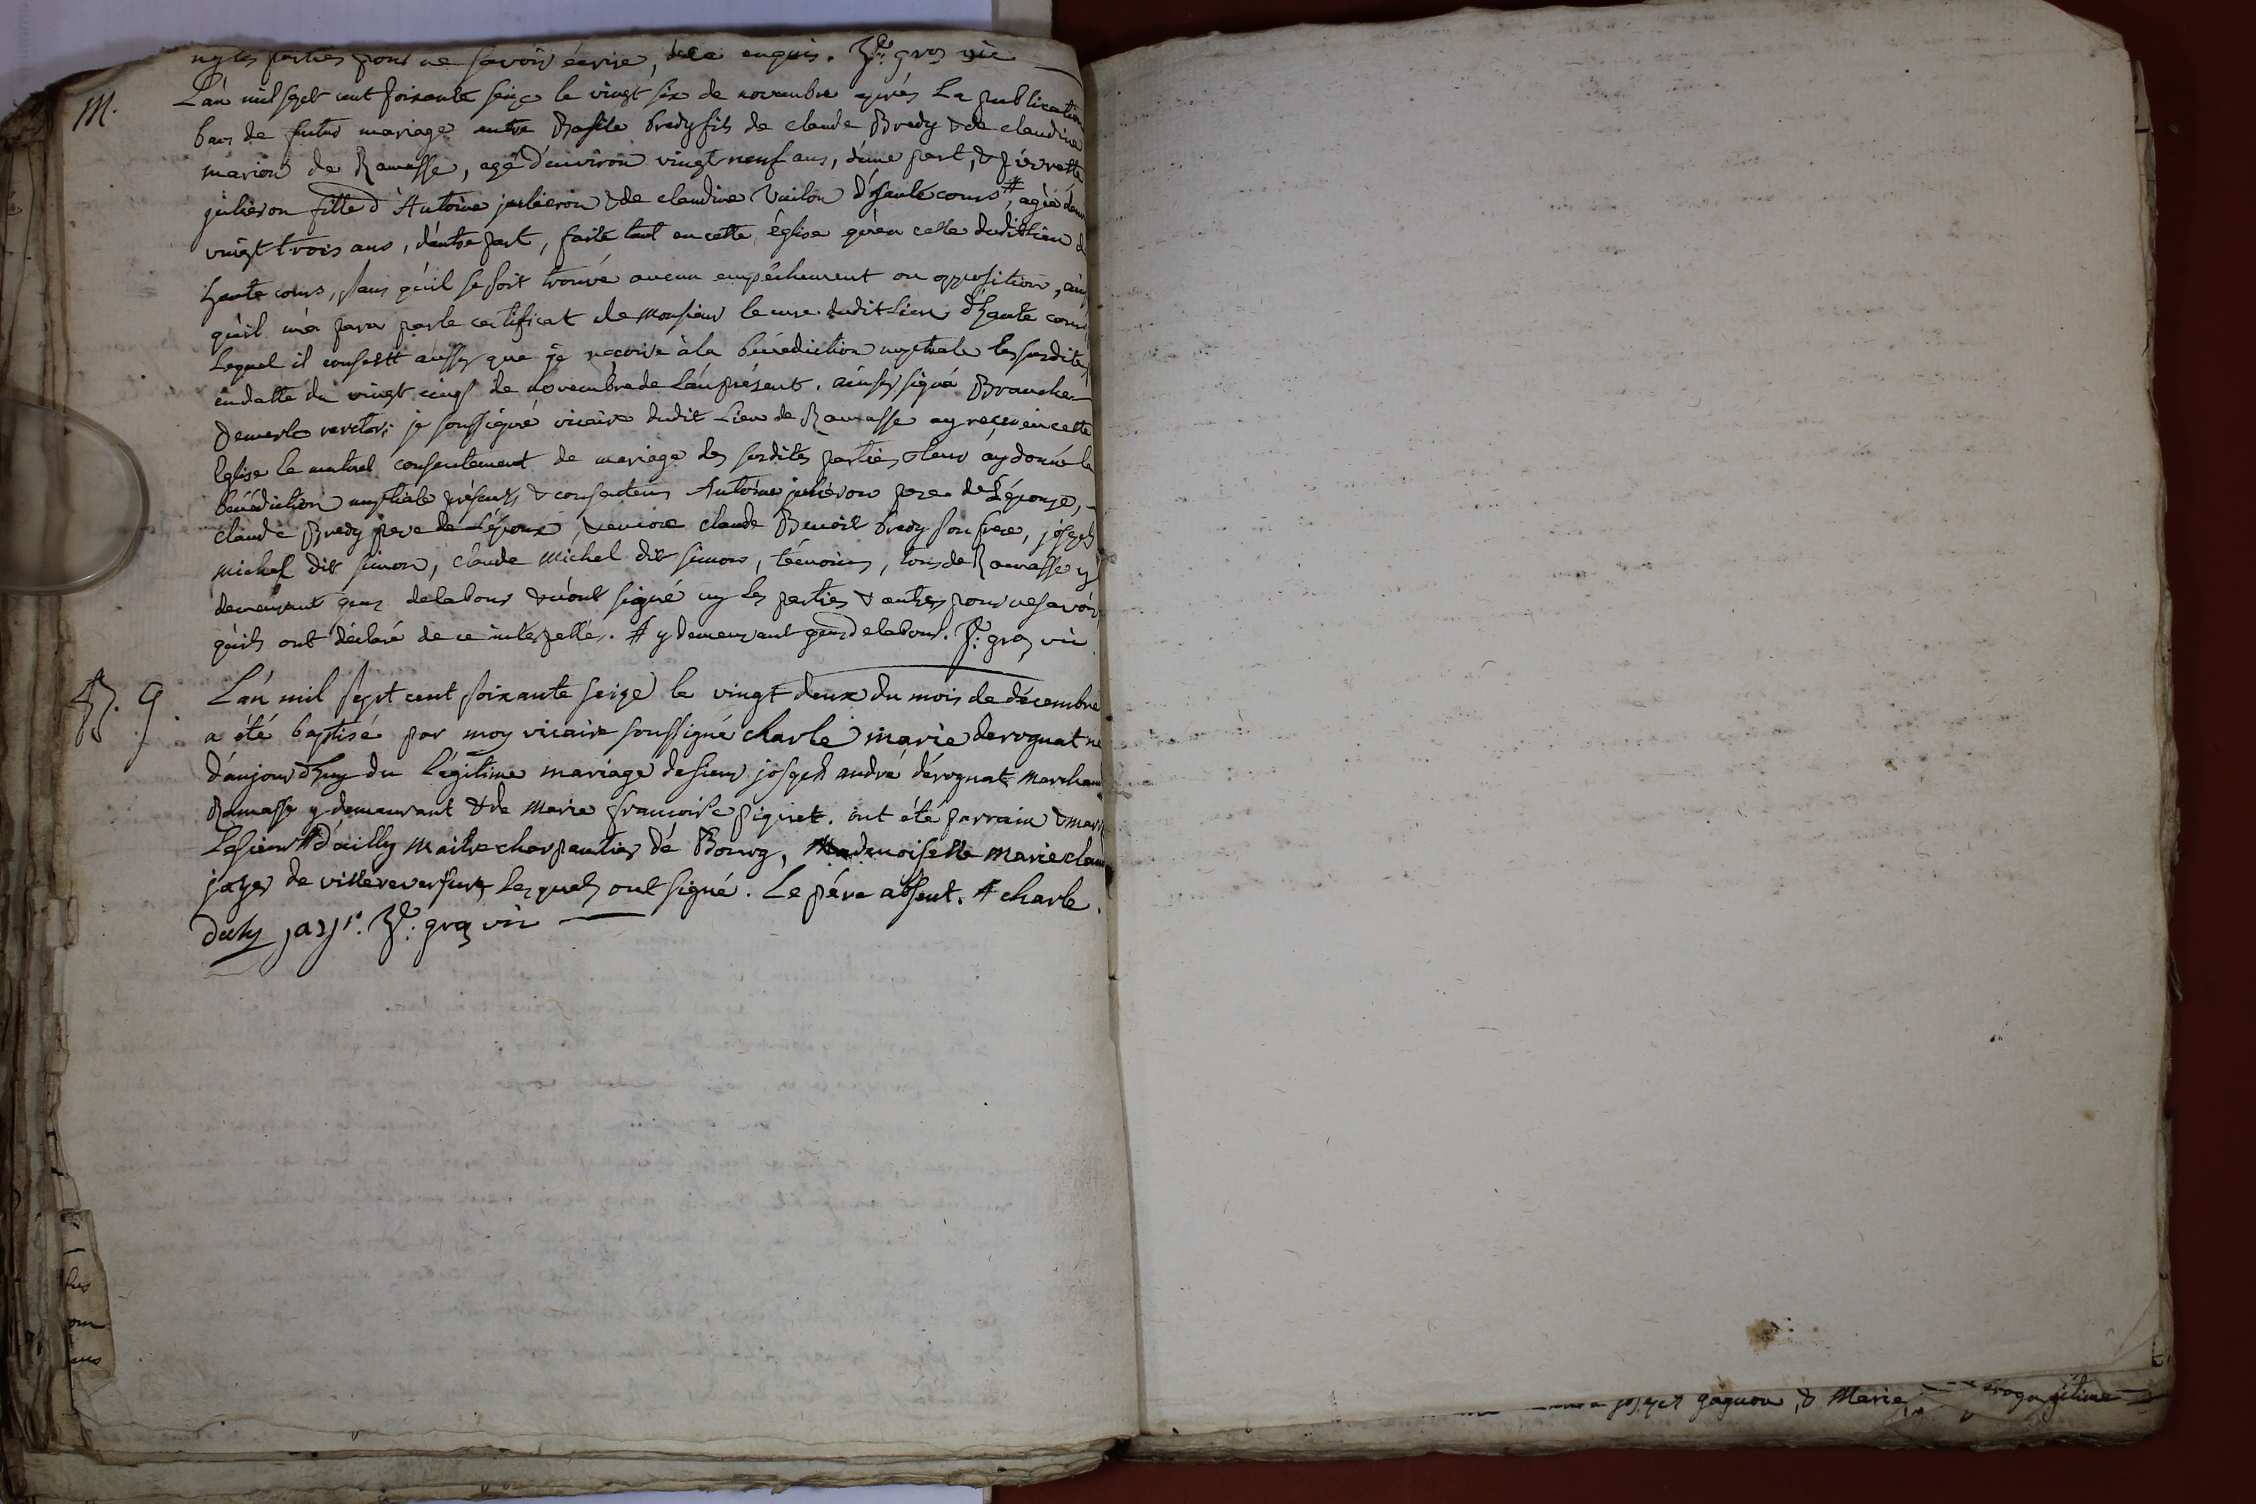 ny les parties pour ne savoir écrire, de ce enquis. gros vic
M.
L'an mil sept cent soixante seize le vingt six de novembre après La publication
bans de futur mariage entre Basile bredy fils de claude Bredy & de claudine
marion de Ramasse, agé d'environ vingt neuf ans, d'une part, & pierrette
julieron fille d'Antoine julieron & de claudine Vuilon d'haute cours #, agée d'env
vingt trois ans, d'autre part, faite tant en cette église qu'en celle dudit lieu d
haute cours, sans qu'il se soit trouvé aucun empêchement ou opposition, ains
qu'il m'a paru par le certificat de Monsieur le curé dudit Lieu d'haute cours
Lequel il consent aussy que je recoive à la bénédiction nuptiale les susdites
en datte du vingt cinq de novembre de L'an présent. ainsy signé
je soussigné vicaire dudit Lieu de Ramasse ay reçu en cette
Eglise le mutuel consentement de mariage des susdites parties & leur ay donné la
bénédiction nuptiale présents & consentens Antoine julieron pere de L'épouse,
claude Bredy pere de L'époux, encore claude Benoit bredy son frere, joseph
michel dit simon, claude michel dit simon, témoins, tous de Ramasse y
demeurant gens de labour & n'ont signé ny les parties & autres pour ne savoir
qu'ils ont déclaré de ce interpellés. # y demeurant gens de labour. gros vic
B. 9.
L'an mil sept cent soixante seize le vingt deux du mois de décembre
a été baptisé par moy vicaire soussigné charle marie derognat né
d'aujourd'huy du Légitime mariage de sieur joseph andré dérognat Marchand
Ramasse y demeurant & de Marie françoise piquet. ont été parrain & marr
Le sieur # d'ailly Maitre charpentier de Bourg, Mademoiselle Marie claud
jayr de villereversure Lesquels ont signé. Le pére absent. # charle.
dally jayr. gros vic
joseph gagnon, & Marie